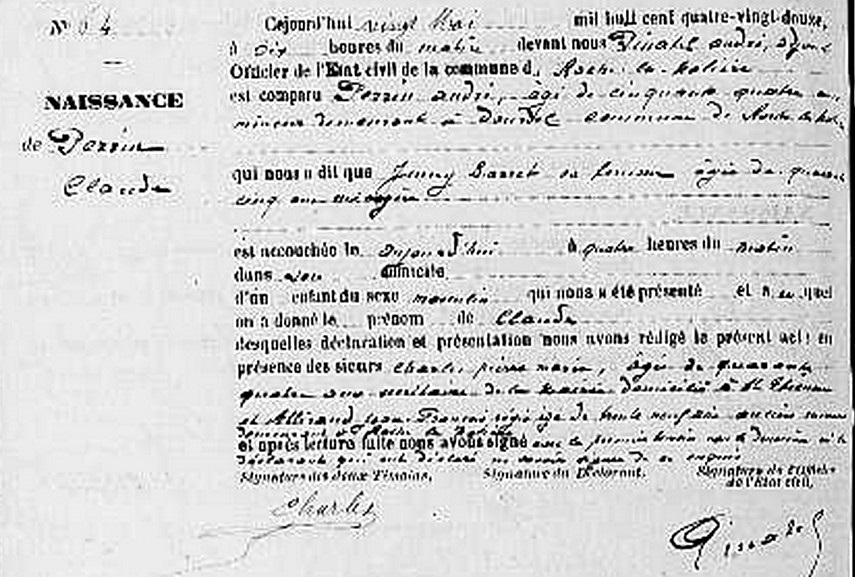 N° 64
NAISSANCE
de Perrin
Claude
Cejourd'hui vingt Mai mil huit cent quatre-vingt-douze,
à dix heures du matin devant nous Pinatel andré, adjoint
Officier de l'Etat civil de la commune d Roche la Molière
est comparu Perrin andré, âgé de cinquante quatre ans
mineur demeurant à commune de Roche la Molière
qui nous a dit que Jenny sa femme âgée de quarante
cinq ans ménagère
est accouchée le aujourd'hui à quatre heures du matin
dans son domicile
d'un enfant du sexe masculin qui nous a été présenté et auquel
on a donné le prénom de Claude
desquelles déclaration et présentation nous avons rédigé le présent acte en
présence des sieurs Charles pierre marie, âgé de quarante
quatre ans secrétaire de la mairie domicilié à St Etienne
et jean François âgé de trente neuf ans
demeurant à Roche la Molière
et après lecture faite nous avons signé avec le premier témoin non le deuxième ni le
déclarant qui ont déclaré ne savoir signer de ce requis
Signature des deux Témoins, Signature du Déclarant, Signature de l'Officier
de l'Etat civil,
Charles
Pinatel